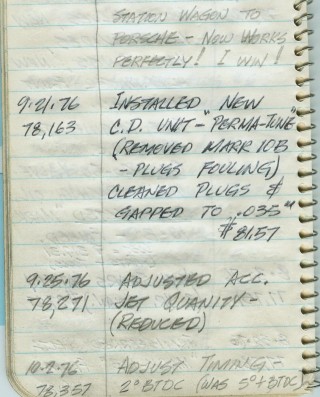 STATION WAGON TO
PORSCHE - NOW WORKS
PERFECTLY! I WIN!
9.21.76 INSTALLED NEW
78,163 C.D. UNIT - "PERMA-TUNE"
(REMOVED MARK 10B
- PLUGS FOULING)
CLEANED PLUGS &
GAPPED TO .035"
$81.57
9.25.76 ADJUSTED ACC.
78,271 JET QUANITY -
(REDUCED)
10.2.76 ADJUST TIMING -
78,357 2° BTDC (WAS 5°+ BTDC)